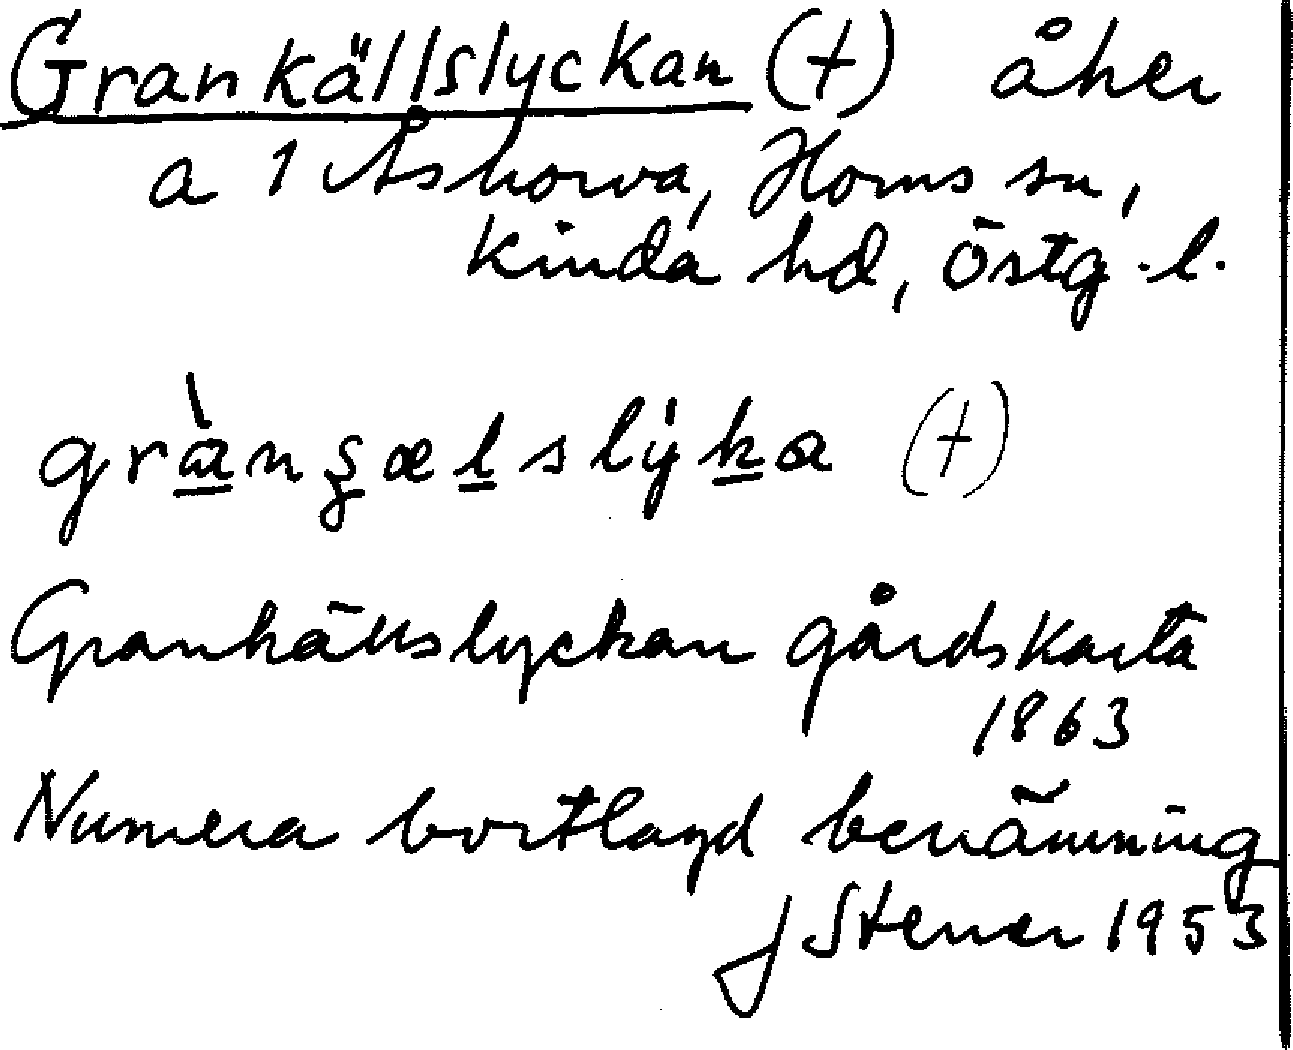 Grankällslyckan (†) åker
a 1 Åskorva, Horns sn,
Kinda hd, Östg.l.
grànʂælslýka (†)
Grankällslyckan gårdskarta
1863
Numera bortlagd benämning
J Stener 1953